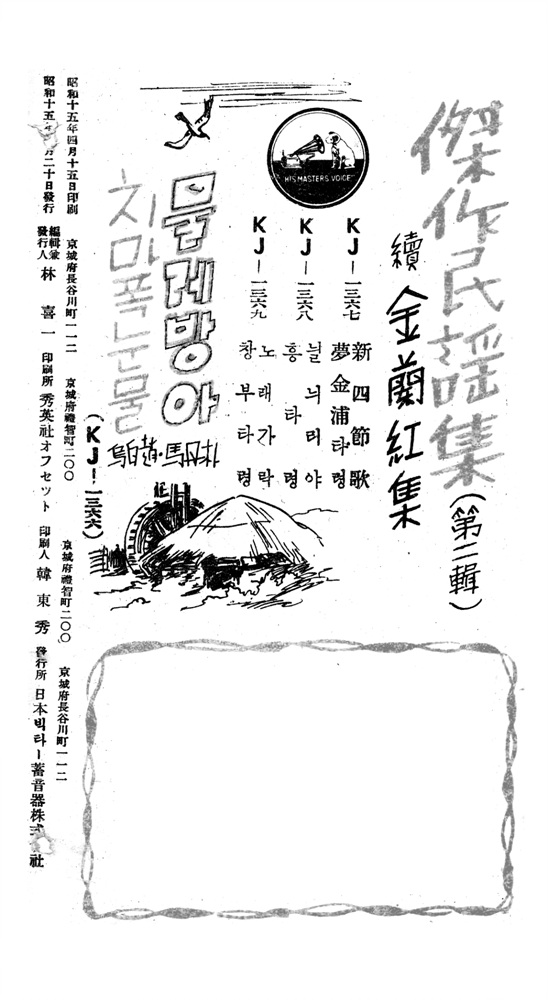 傑作民謠集(第二輯)
續 金蘭紅集
"HIS MASTERS VOICE"
KJ-一三六七
新四節歌
夢金浦타령
KJ-一三六八
늴늬리야
흥타령
KJ-一三六九
노래가락
창부타령
물레방아
치마폭눈물
(KJ-一三六六)
昭和十五年四月十五日印刷
昭和十五年 月二十日發行
京城府長谷川町一一二
編輯兼發行人 林 喜一
京城府禮智町二〇〇
印刷所 秀英社オフセット
京城府禮智町二〇〇
印刷人 韓東秀
京城府長谷川町一一二
發行所 日本빅타ー蓄音器株式 社